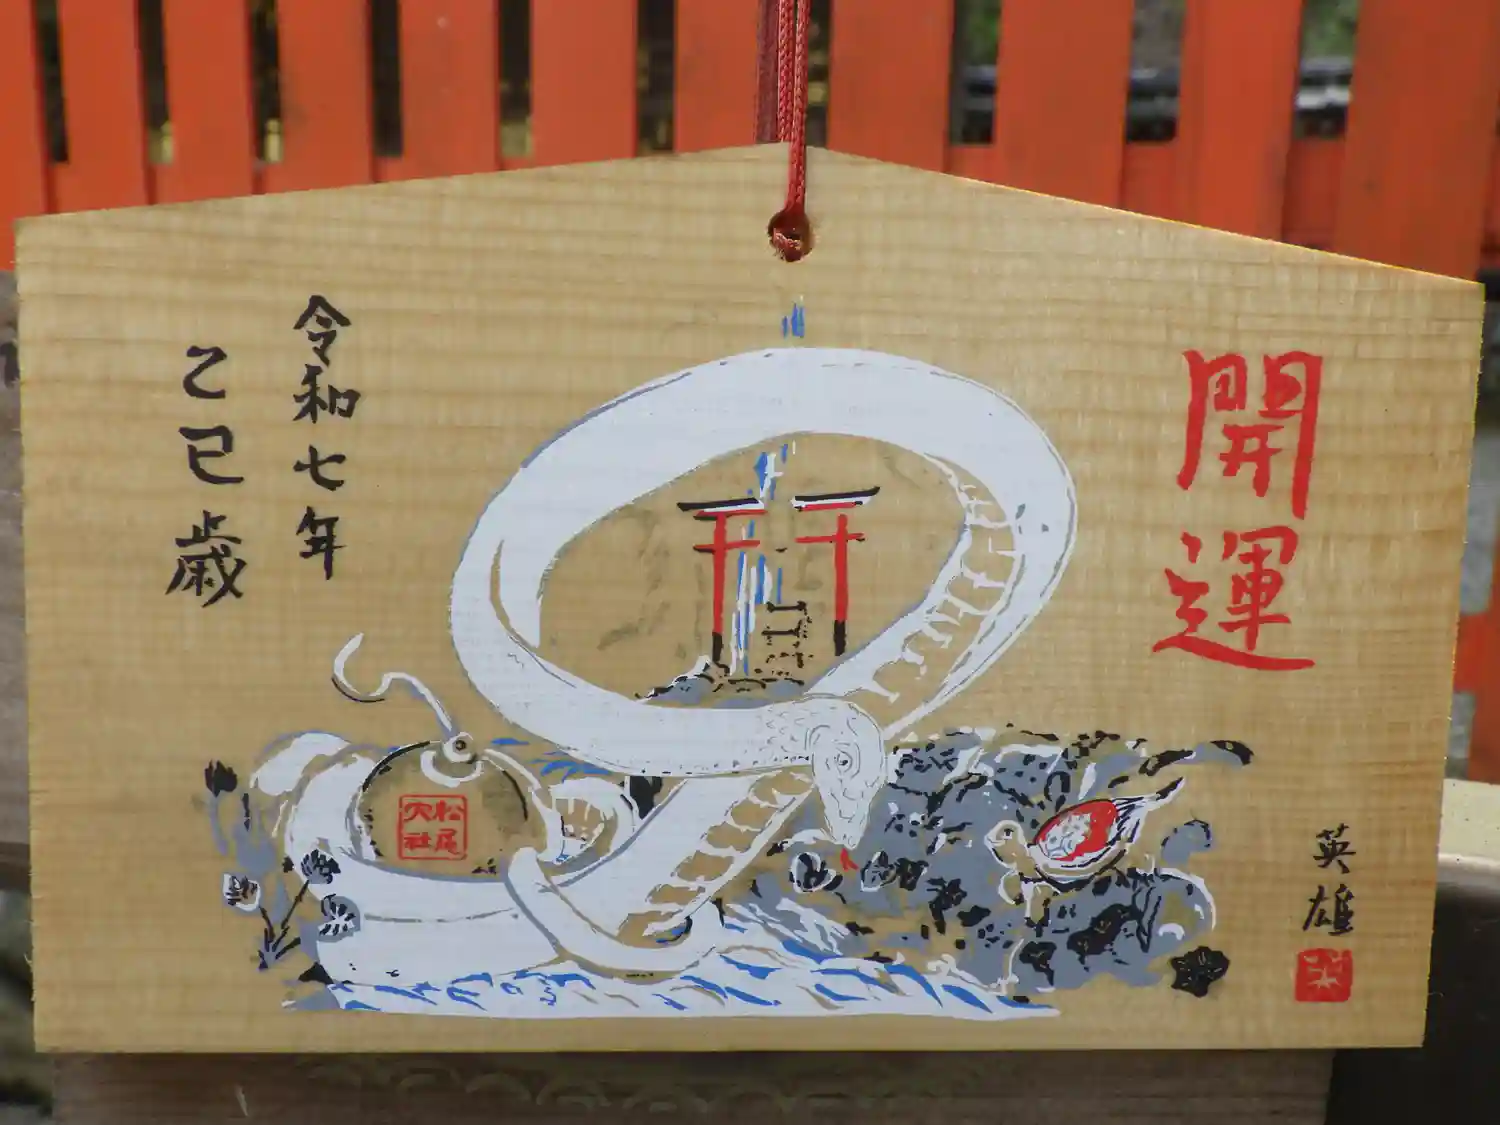 開運
令和七年
乙巳歳
英雄
松尾
穴社